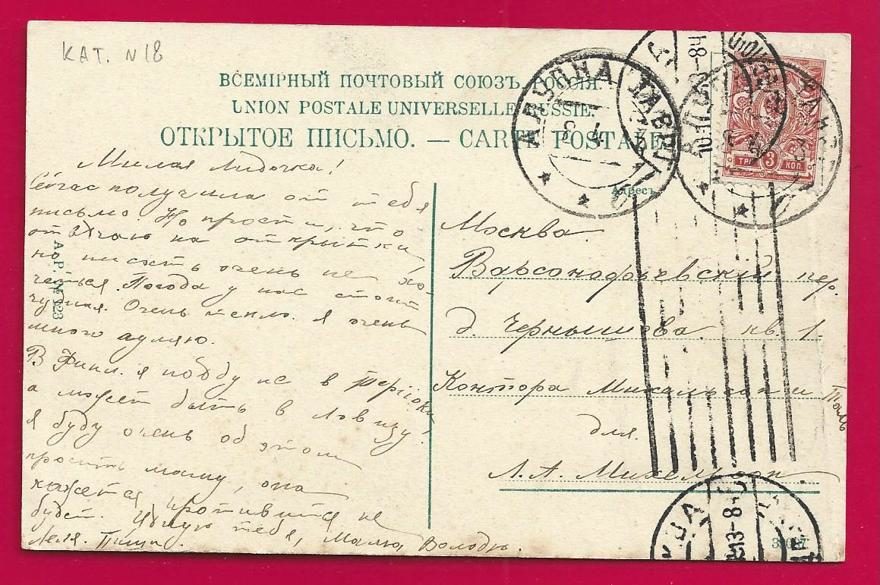 КАТ. N 18
ВСЕМІРНЫЙ ПОЧТОВЫЙ СОЮЗЪ. РОССІЯ.
UNION POSTALE UNIVERSELLE. RUSSIE.
ОТКРЫТОЕ ПИСЬМО. — CARTE POSTALE
Адресъ
ТРИ 3 КОП.
Милая Лидочка!
Сейчас получила от тебя
письмо. Но прости, что
отвѣчаю на открытки,
но писать очень не хо-
чется. Погода у нас стоит
чудная. Очень тепло. Я очень
много гуляю.
В Финл. я поѣду не в Теріоки
а может быть в Ловизу!
Я буду очень об этом
просить маму, она
кажется противится не
будет. Цѣлую тебя, Малю, Володю.
Леля. Пиши.
Москва.
Варсонофьевскій пер.
д. Чернышова кв. 1.
Контора Михельсон и
для
Л. А. Михельсон
А. Р. № 123
ЯЛОВКА ТАВР.